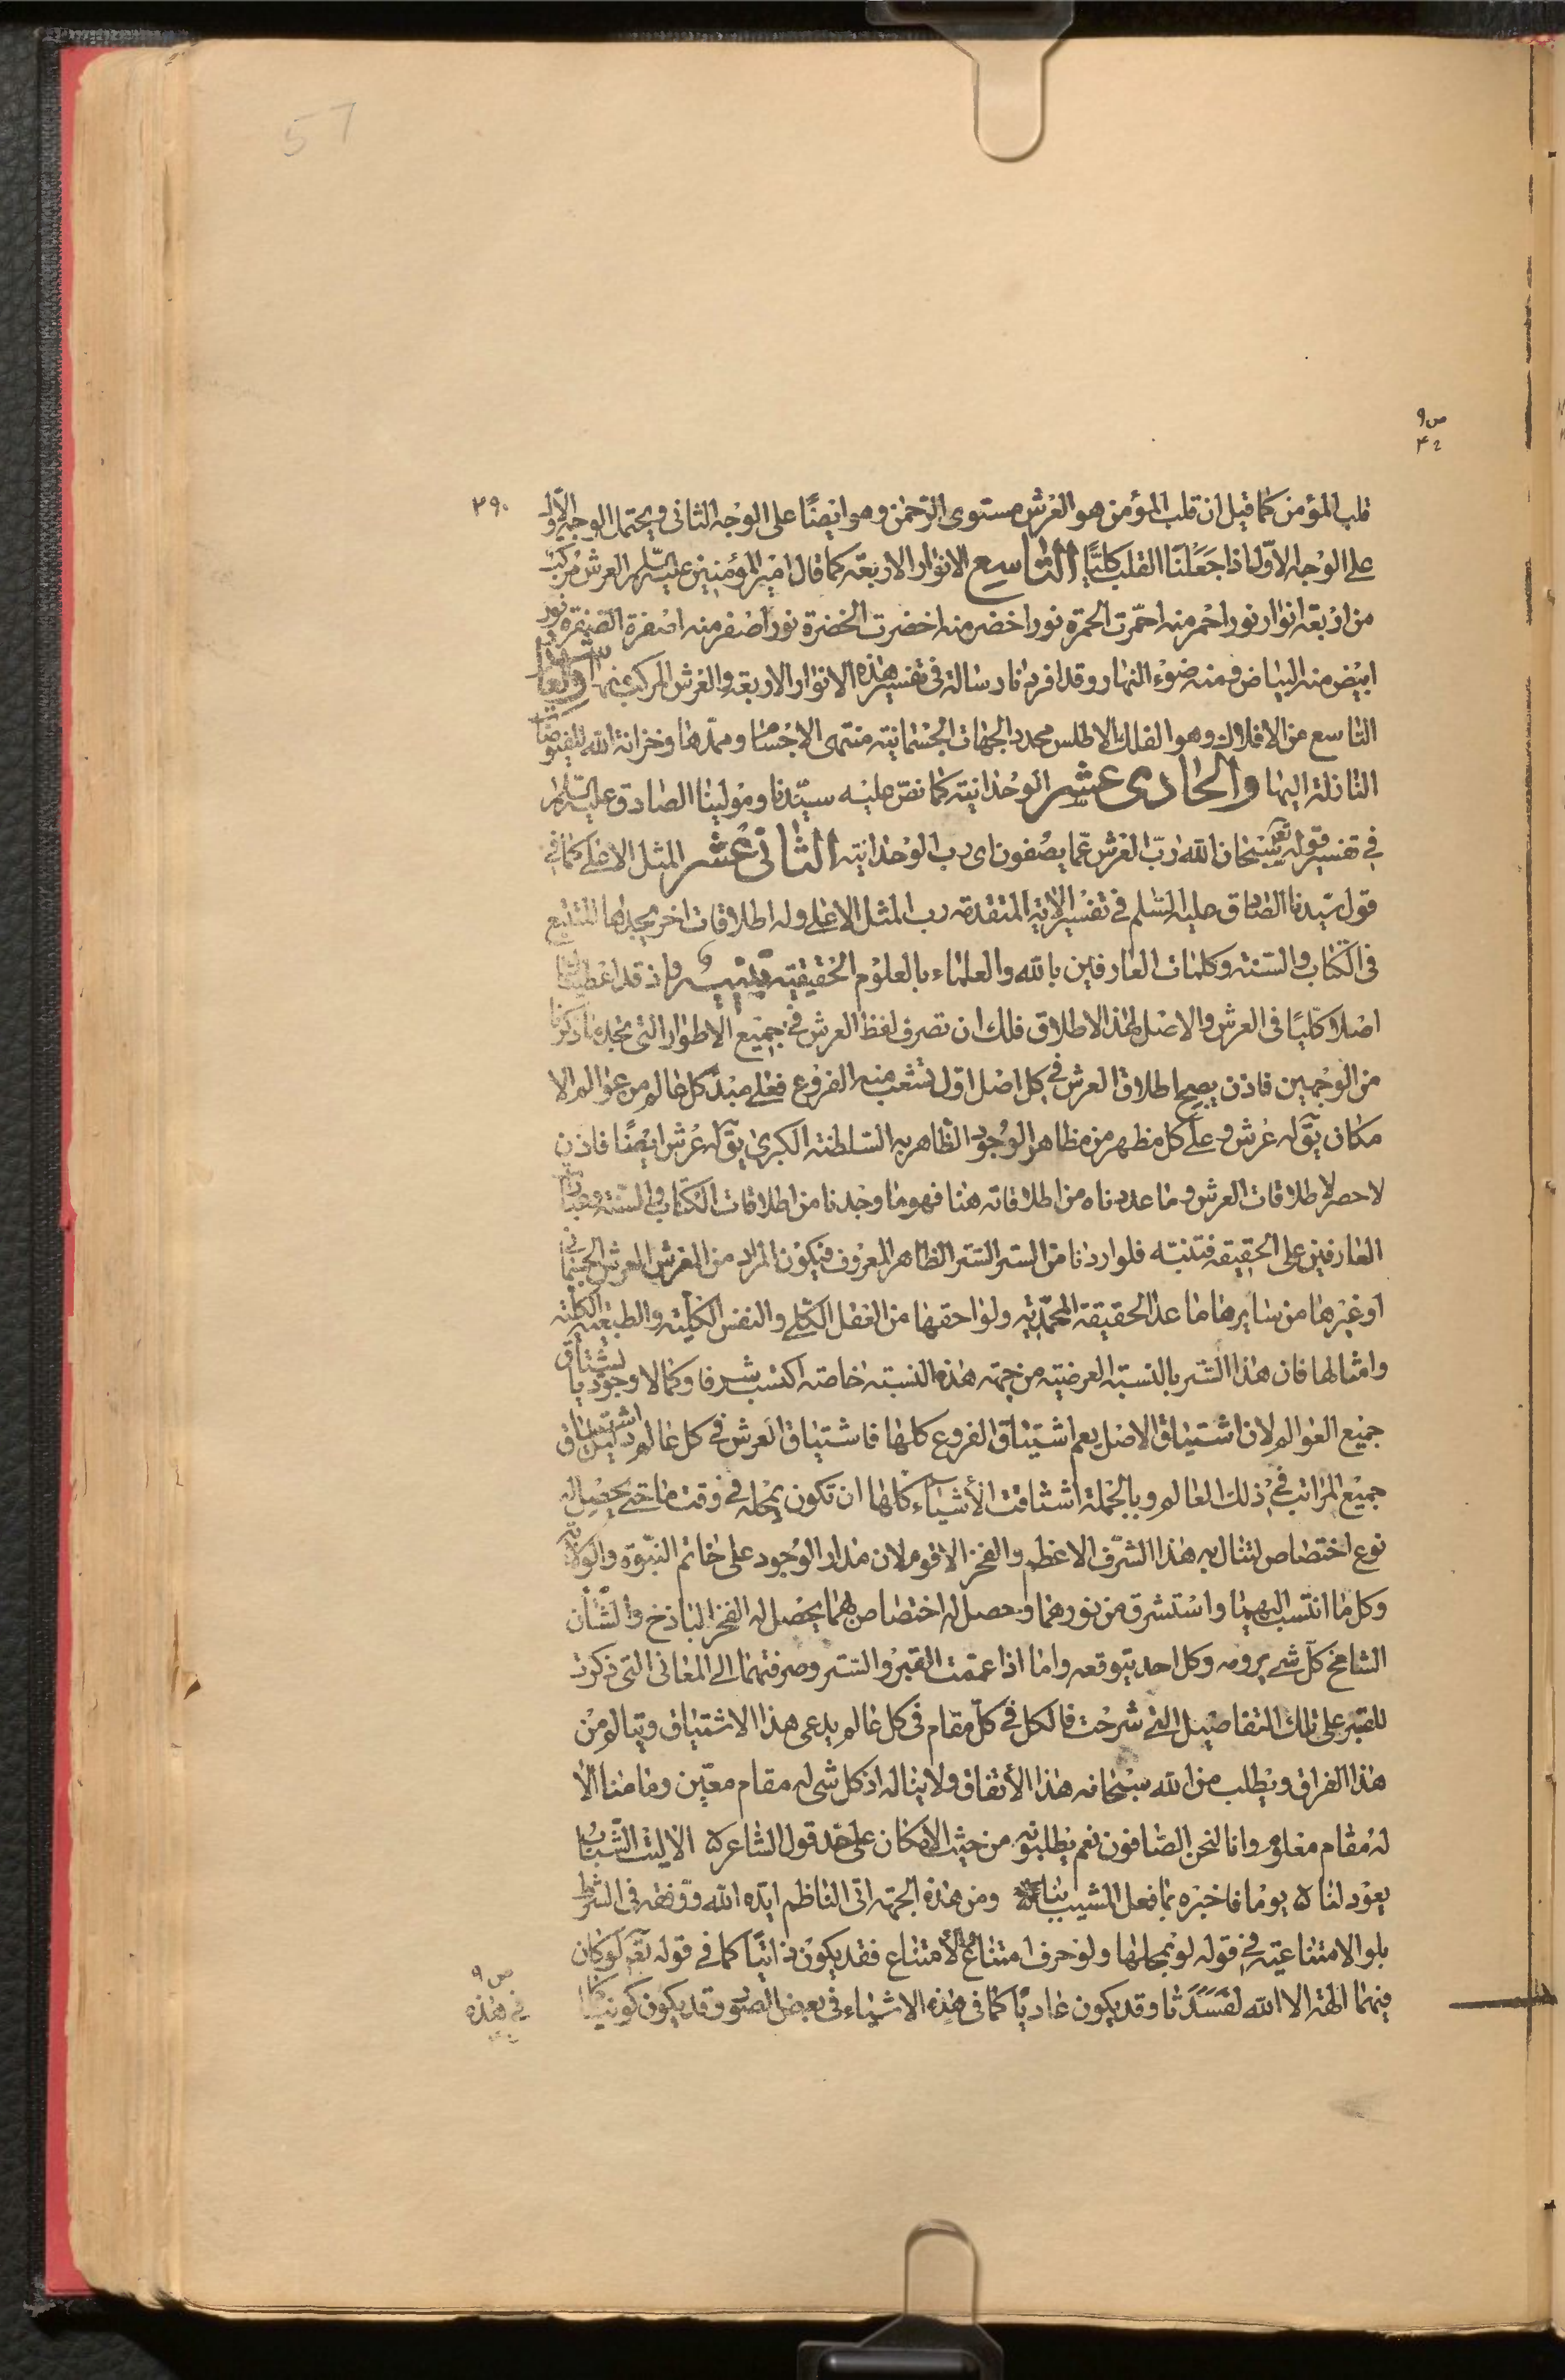 57
ص ٩
٤٢
٣٩٠
قلب المؤمن كما قيل ان قلب المؤمن هو العرش مستوى الرحمن وهو ايضًا على الوجه الثانى ويحتمل الوجه الاول
على الوجه الاول اذا جعلنا القلب كليًّا التاسع الانوار الاربعة كما قال امير المؤمنين عليه السلم العرش مركب
من اربعة انوار نور احمر منه احمرت الحمرة نور اخضر منه اخضرت الخضرة نور اصفر منه اصفرة الصفرة نور
ابيض منه البياض ومنه ضوء النهار وقد افردنا رسالة فى تفسير هذه الانوار الاربعة والعرش المركب منها والعاشر
التاسع من الافلاك وهو الفلك الاطلس محدد الجهات الجسمانية منتهى الاجسام وممدها وخزانة الله للفيوضات
النازلة اليها والحادى عشر الوحدانية كما نص عليه سيدنا ومولينا الصادق عليه السلم
فى تفسير قوله تعالى سبحان الله رب العرش عما يصفون اى رب الوحدانية الثانى عشر المثل الاعلى كما فى
قول سيدنا الصادق عليه السلم فى تفسير الاية المتقدمة رب المثل الاعلى وله اطلاقات اخر يجدها المتتبع
فى الكتاب والسنة وكلمات العارفين بالله والعلماء بالعلوم الحقيقية تنبيه واذ قد اعطيناك
اصلا كليًا فى العرش والاصل لهذا الاطلاق فلك ان تصرف لفظ العرش فى جميع الاطوار التى تجد ما ذكرنا
من الوجهين فاذن يصح اطلاق العرش فى كل اصل اول تشعب منه الفروع فعلى مبدء كل عالم من عوالم الا
مكان يق له عرش وعلى كل مظهر من مظاهر الوجود الظاهر به السلطنة الكبرى يق له عرش ايضًا فاذن
لا حصر لاطلاقات العرش وما عددناه من اطلاقاته هنا فهو ما وجدنا من اطلاقات الكتاب والسنة وعبارات
العارفين على الحقيقة فتنبه فلو اردنا من الستر الستر الظاهر المعروف فيكون المراد من العرش العرش الجسمانى
او غيرها من سايرها ما عدا الحقيقة المحمدية ولواحقها من العقل الكلى والنفس الكلية والطبيعة الكلية
وامثالها فان هذا الستر بالنسبة العرضية من جهة هذه النسبة خاصة اكتسب شرفا وكمالا وجوديا يشتاق
جميع العوالم لان اشتياق الاصل يعم اشتياق الفروع كلها فاشتياق العرش فى كل عالم دليل اشتياق
جميع المراتب فى ذلك العالم وبالجملة اشتاقت الأشياء كلها ان تكون يحله فى وقت ما حتى يحصل له
نوع اختصاص لتنال به هذا الشرف الاعظم والفخر الاقوم لان مدار الوجود على خاتم النبوة والولاية
وكل ما انتسب اليهما واستشرق من نورهما وحصل له اختصاص بهما يحصل له الفخر الباذخ والشأن
الشامخ كل شىء يرومه وكل احد يتوقعه واما اذا عممت القبر والستر وصرفتهما الى المعانى التى ذكرت
للقبر على تلك التفاصيل التى شرحت فالكل فى كل مقام فى كل عالم يدعى هذا الاشتياق ويتالم من
هذا الفراق ويطلب من الله سبحانه هذا الأتفاق ولا يناله اذ كل شى له مقام معين وما منا الا
له مقام معلوم وانا لنحن الصافون نعم يطلبونه من حيث الامكان على حد قول الشاعر ه الا ليت الشباب
يعود لنا ه يوما فاخبره بما فعل المشيب بنا ومن هذه الجهة اتى الناظم ايده الله ووفقه فى الشرط
بلو الامتناعية فى قوله لو بمحلها ولو حرف امتناع لامتناع فقد يكون ذاتيًا كما فى قوله تعالى لو كان
فيهما الهة الا الله لفسدتا وقد يكون عاديًا كما فى هذه الاشياء فى بعض الصور وقد يكون كونيا كما
ص ٩
فى هذه